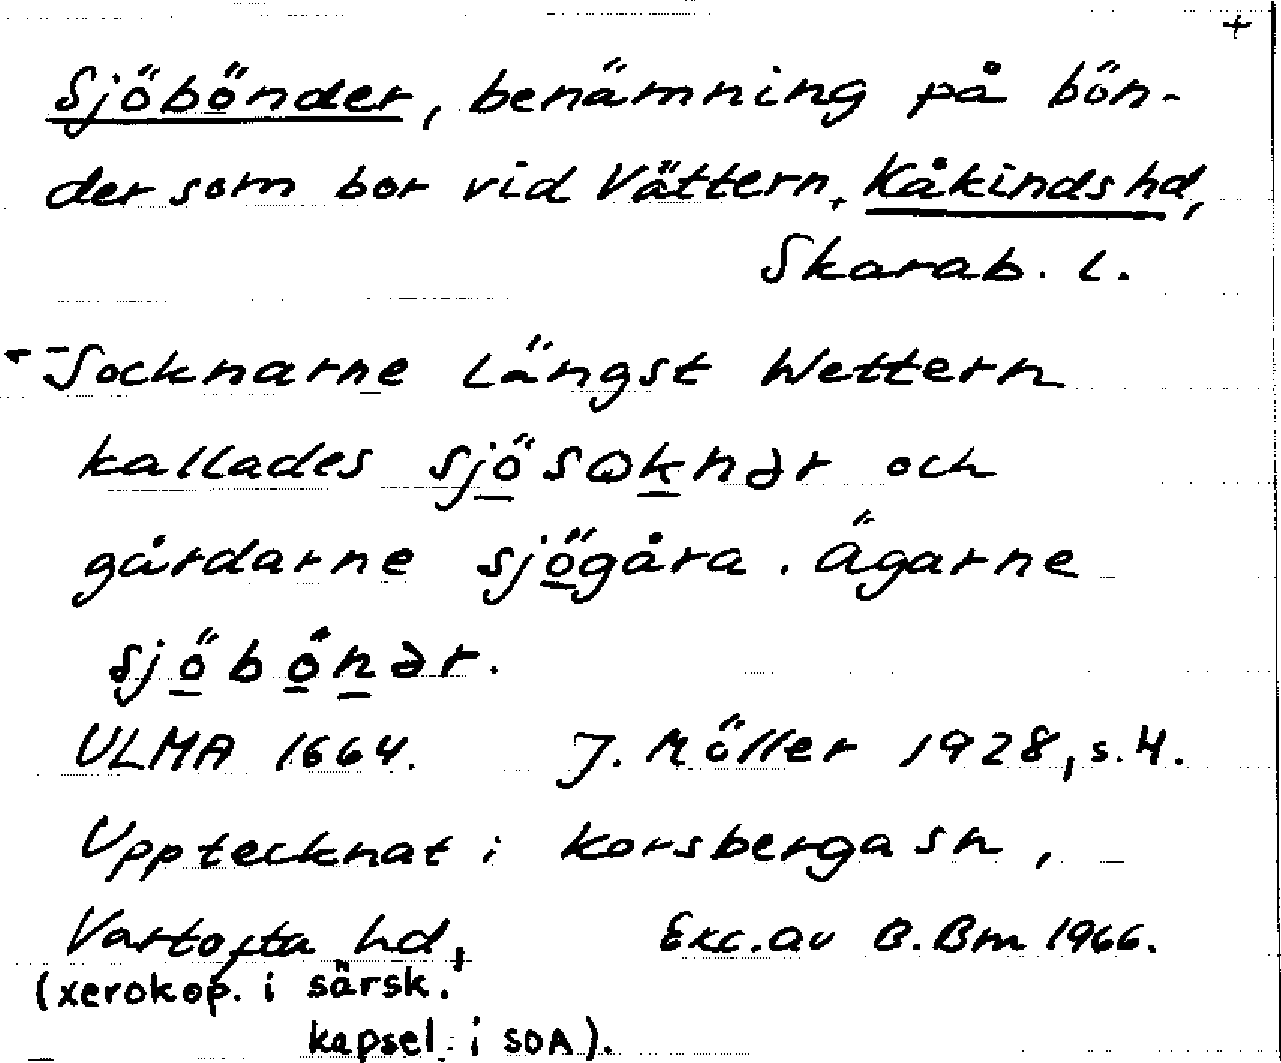 +
Sjöbönder, benämning på bön-
der som bor vid Vättern, Kåkinds hd,
Skarab. l.
- Socknarne längst Wettern
kallades sjösoknər och
gårdarne sjögåra. Ägarne
sjöbönər.
ULMA 1664. J. Möller 1928, s. 4.
Upptecknat i Korsberga sn,
Vartofta hd, Exc. av B. Bm 1966.
(xerokop. i särsk.
kapsel i SOA).